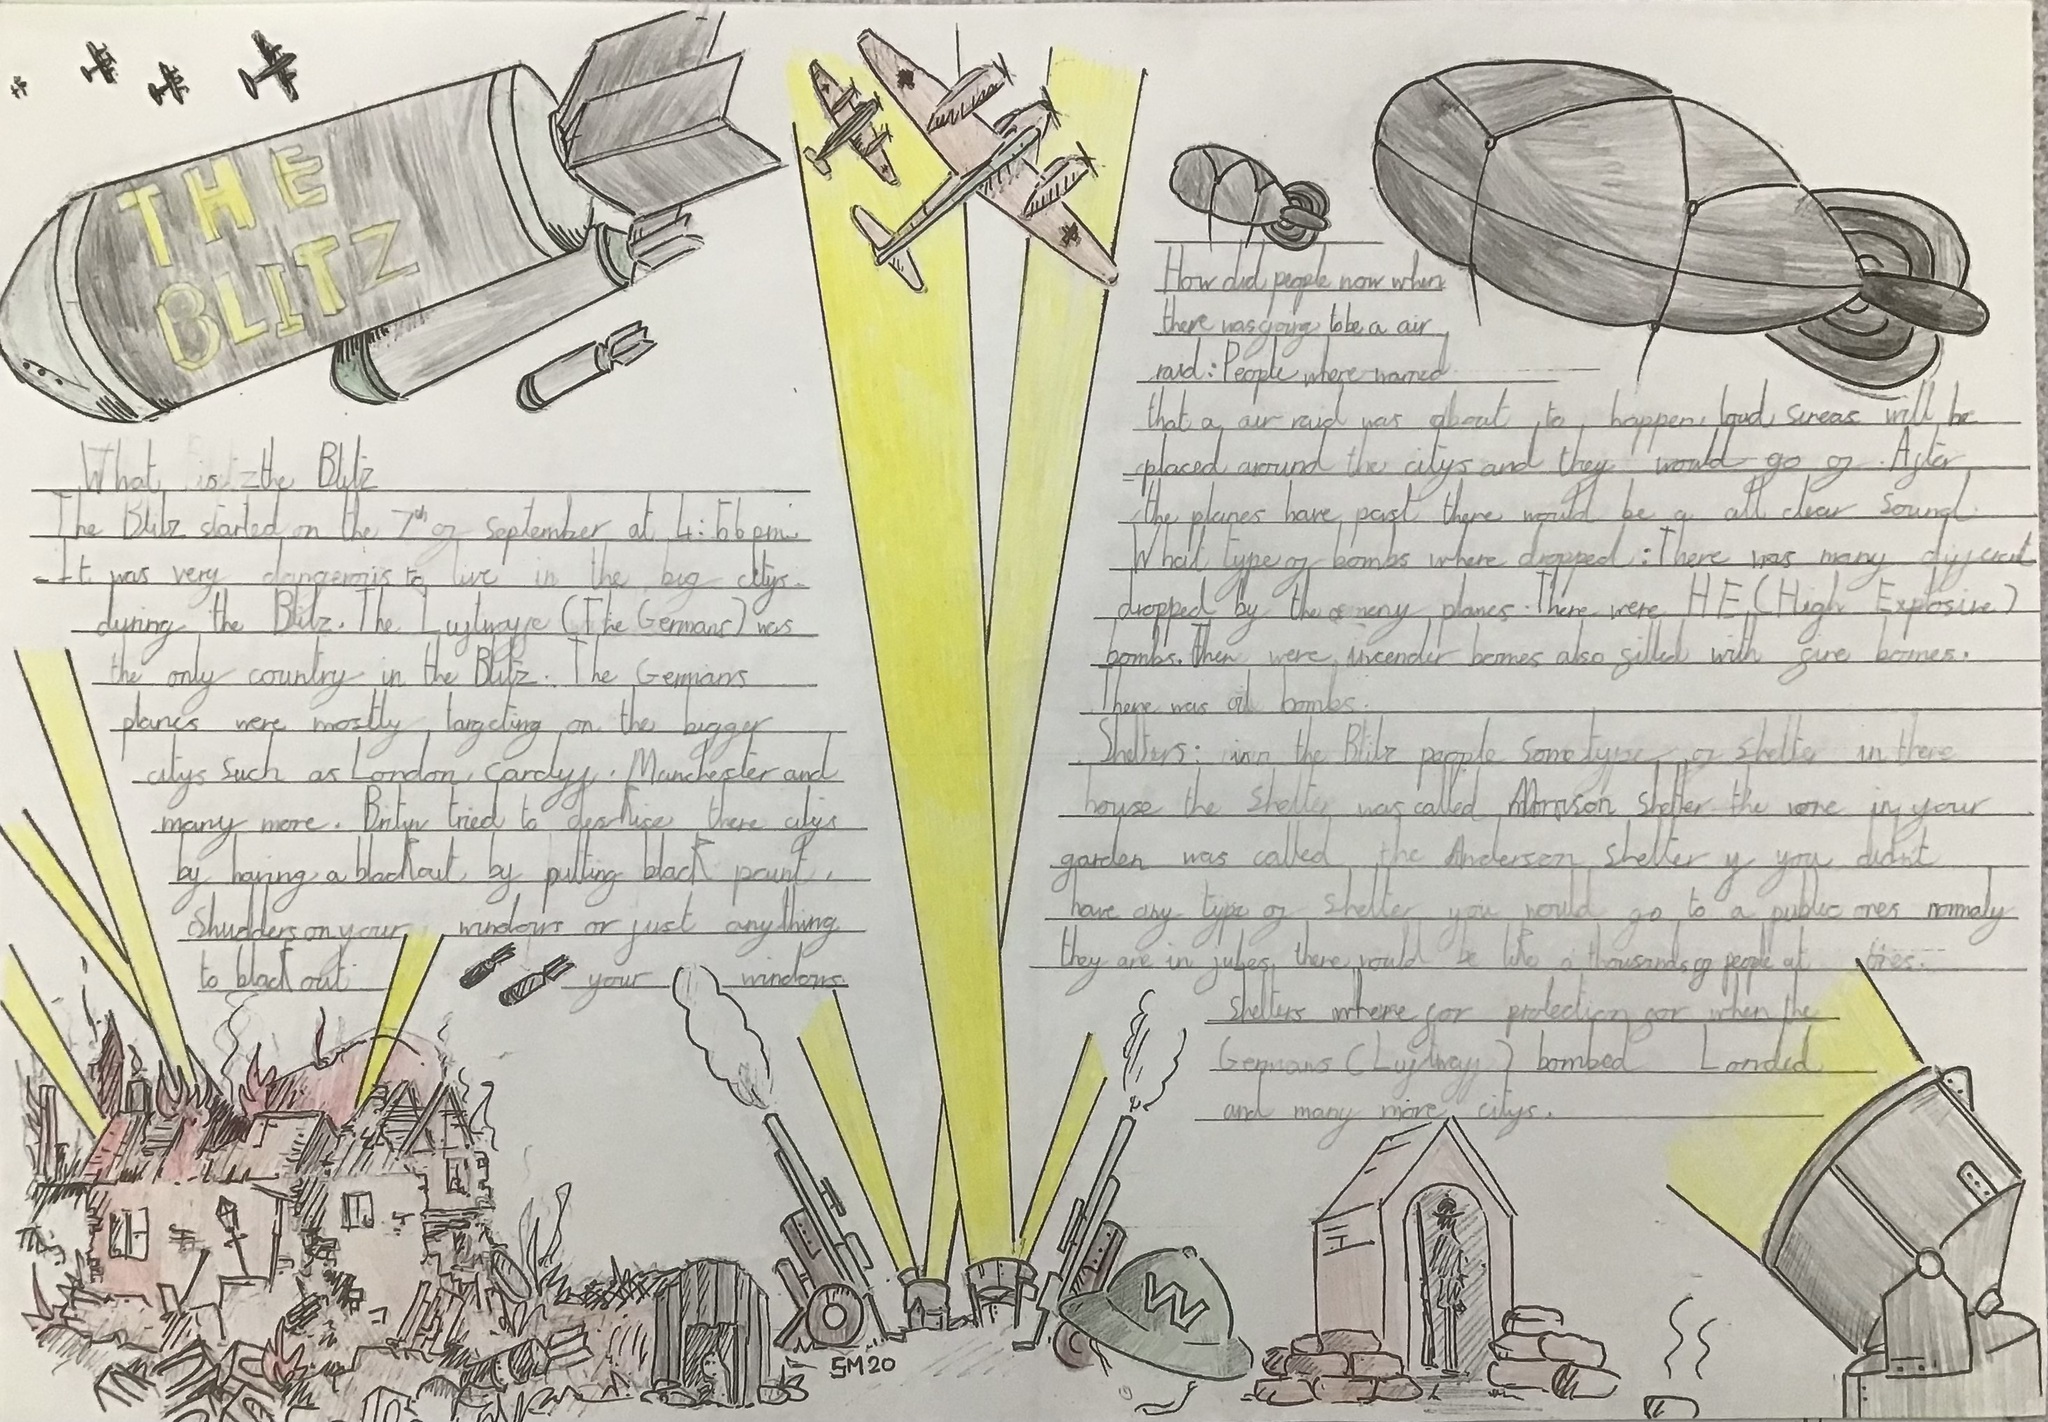 THE
BLITZ
What is the Blitz
The Blitz started on the 7th of September at 4:56pm.
It was very dangerous to live in the big citys
during the Blitz. The Luftwaffe (The Germans) was
the only country in the Blitz. The Germans
planes were mostly targeting on the bigger
citys such as London, Cardyff, Manchester and
many more. tried to there citys
by having a blackout by putting black paint,
Shudders on your windows or just anything
to black out your windows.
How did people now when
there was going to be a air
raid: People where warned
that a air raid was about to happen, loud sireas will be
placed around the citys and they would go of. After
the planes have past there would be a all clear sound.
What type of bombs where dropped: There was many different
dropped by the enemy planes. There were HE (High Explosive)
bombs. Then were incender bomes also filled with fire bomes.
There was oil bombs.
Shelters: in the Blitz people some type of shelter in there
house the shelter was called Morrison shelter the in your
garden was called the Anderson shelter if you didnt
have any type of shelter you would go to a public ones normaly
they are in tubes, there would be like a thousands of people at
Shelters where for protection for when the
Germans (Luftwaff) bombed
and many more citys.
W
SM20